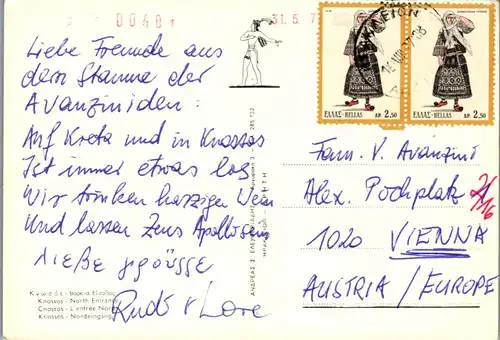 0040
31.5.7
Liebe Freunde aus
dem Stamme der
Avanziniden:
Auf Kreta und in Knossos
Ist immer etwas los
Wir trinken harzigen Wein
Und lassen Zeus Apoll sein
Rudi + Lore
Κνωσός - Βορεία Είσοδος
Knossos - North Entrance
Cnossos - L'entrée Nord
Knossos - Nordeingang
ΕΛΛΑΣ-HELLAS ΔΡ. 2,50
ΕΛΛΑΣ-HELLAS ΔΡ. 2,50
Fam. V. Avanzini
Alex. Pochplatz
1020 VIENNA
AUSTRIA / EUROPE